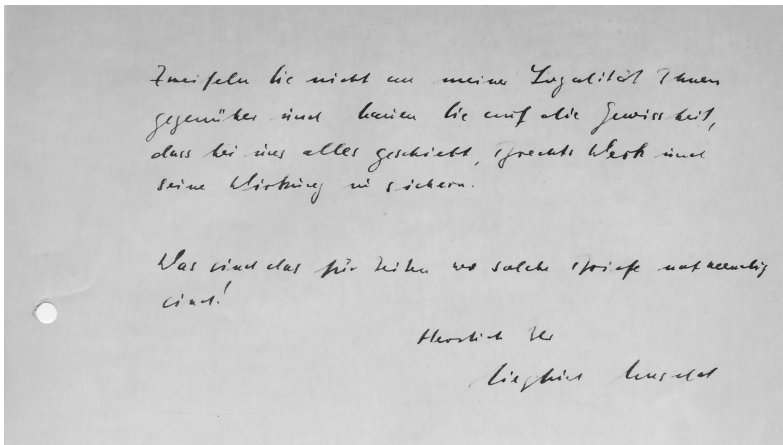 Zweifeln Sie nicht an meiner Loyalität Ihnen
gegenüber und bauen Sie auf die Gewissheit,
dass bei uns alles geschieht, Brechts Werk und
seine Wirkung zu sichern.
Was sind das für Zeiten wo solche Briefe notwendig
sind!
Herzlich Ihr
Siegfried Unseld